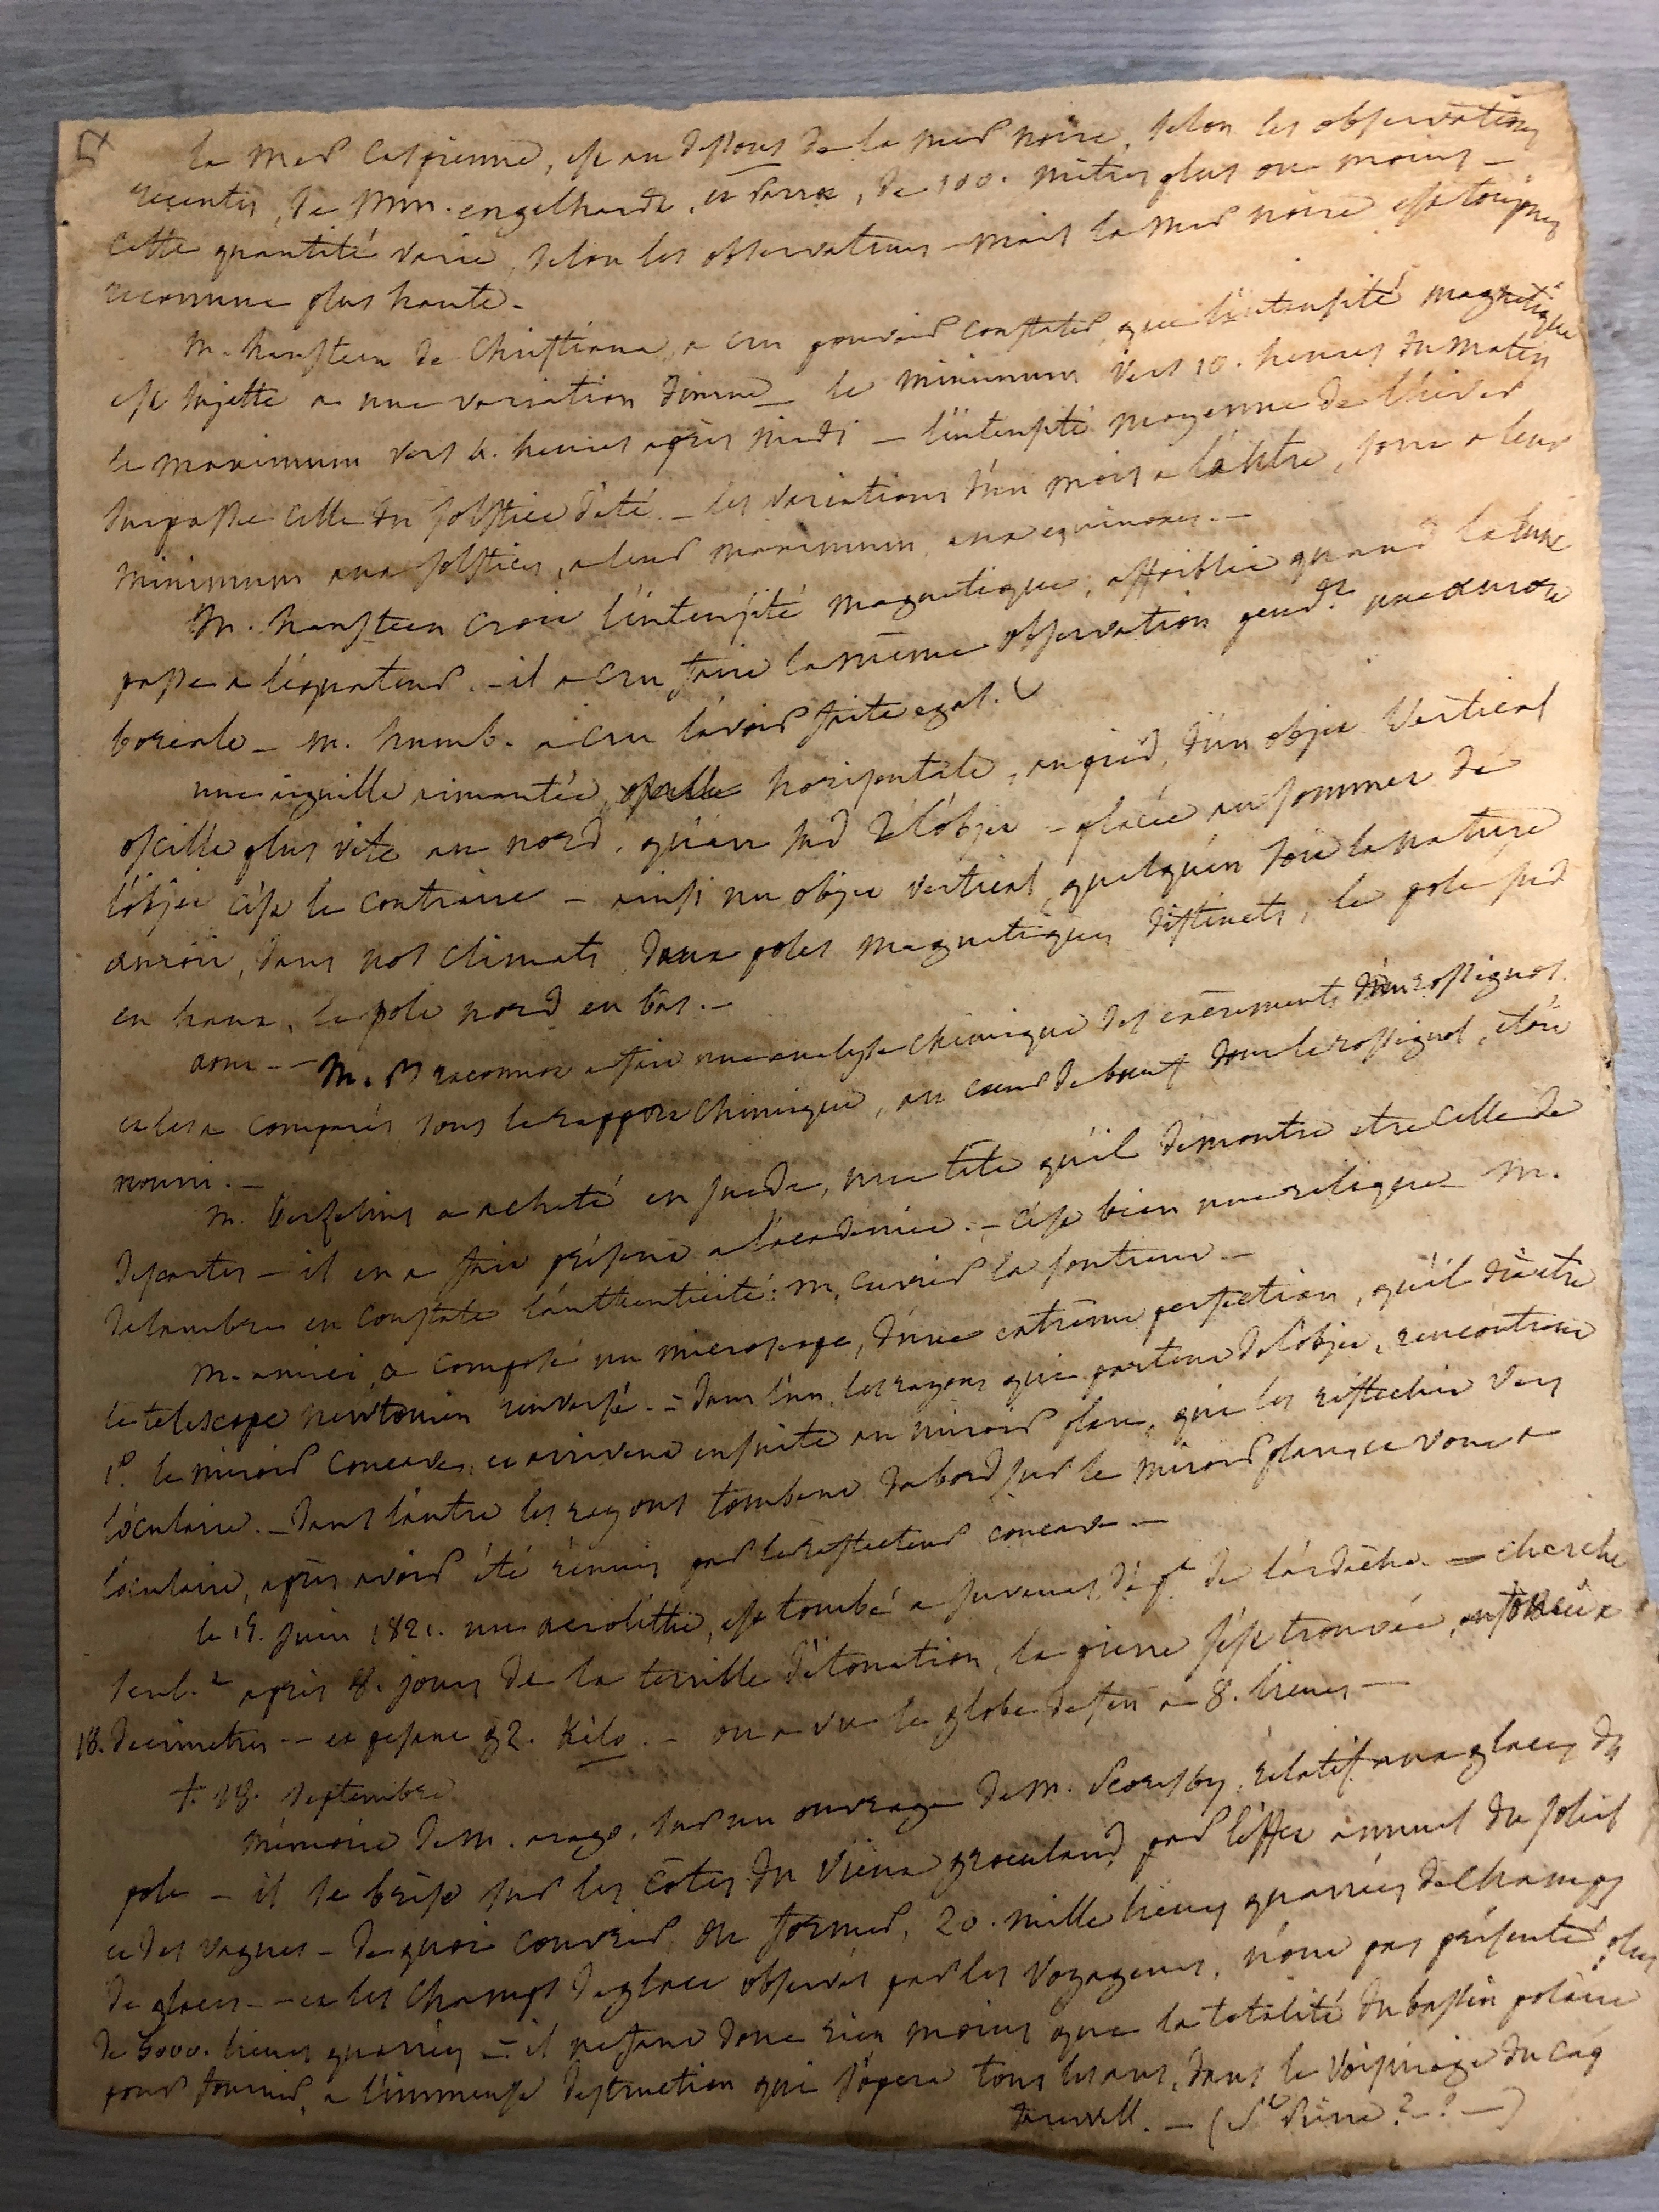 la mer Caspienne, est au dessous de la mer noire, selon les observations
recentes, de Mm. engelhardt, et parrot, de 100. mètres plus ou moins -
cette quantité varie, selon les observations - mais la mer noire est toujours
reconnue plus haute -
M. hansteen de Christiana, a cru pouvoir constater, que l'intensité magnétique
est sujette a une variation diurne - le minimum vers 10. heures du matin
le maximum vers 4. heures après midi - l'intensité moyenne de l'hiver
surpasse celle du solstice d'été. - les variations d'un mois a l'autre, sont a leur
minimum aux solstices, a leur maximum, aux equinoxes. -
M. hansteen croit l'intensité magnetique, affoiblie quand la lune
passe a l'équateur. - il a cru faire la même observation pend.t une aurore
boreale - m. humb. a cru l'avoir faite egal.t
une aiguille aimantée, horisontale, au pied, d'un objet vertical
oscille plus vite au nord, qu'au sud de l'objet - placée au sommet de
l'objet c'est le contraire - ainsi un objet vertical, quelqu'en soit la nature
auroit, dans nos climats, deux poles magnetiques distincts, le pole sud
en haut, le pole nord en bas. -
aout - M. Braconnot a fait une analyse chimique des excrements d'un rossignol.
et les a comparés sous le rapport chimique, au coeur de boeuf dont le rossignol, etoit
nourri. -
M. berzelius a acheté en suede, une tête qu'il démontre etre celle de
descartes - il en a fait présent a l'academie. - c'est bien une relique M.
delambre en constate l'authenticité: M. cuvier la soutient -
M. amici, a composé un microscope, d'une extrême perfection, qu'il dit etre
le telescope newtonien renversé. - dans l'un, les rayons qui partent de l'objet, rencontrent
1.o le miroir concave, et arrivent ensuite au miroir plan, qui les réflechit vers
l'oculaire. - dans l'autre les rayons tombent d'abord sur le miroir plan, et vont a
l'oculaire, après avoir été réunis par le reflecteur concave -
le 15. juin 1821. une aerolithe, est tombé a juvenas, dép.t de l'ardèche. - cherché
seul.t après 8. jours de la terrible détonation, la pierre s'est trouvée, enfoncée a
18. decimetres - et pesant 92. Kilo. - on a vu le globe de feu a 8. lieues -
+ 18. septembre
Mémoire de M. arago, sur un ouvrage de M. Scoresby, relatif aux glaces du
pole - il se brise sur les côtes du vieux groenland, par l'effet annuel du soleil
et des vagues - de quoi couvrir, ou former, 20. mille lieues quarrées de champs
de glaces - et les champs de glace observés par les voyageurs, n'ont pas présenté plus
de 3000. lieues quarrées - il ne faut donc rien moins que la totalité du bassin polaire
pour fournir, a l'immense destruction qui s'opere tous les ans, dans le voisinage du cap
farewell. - (S.t Pierre? -? -)